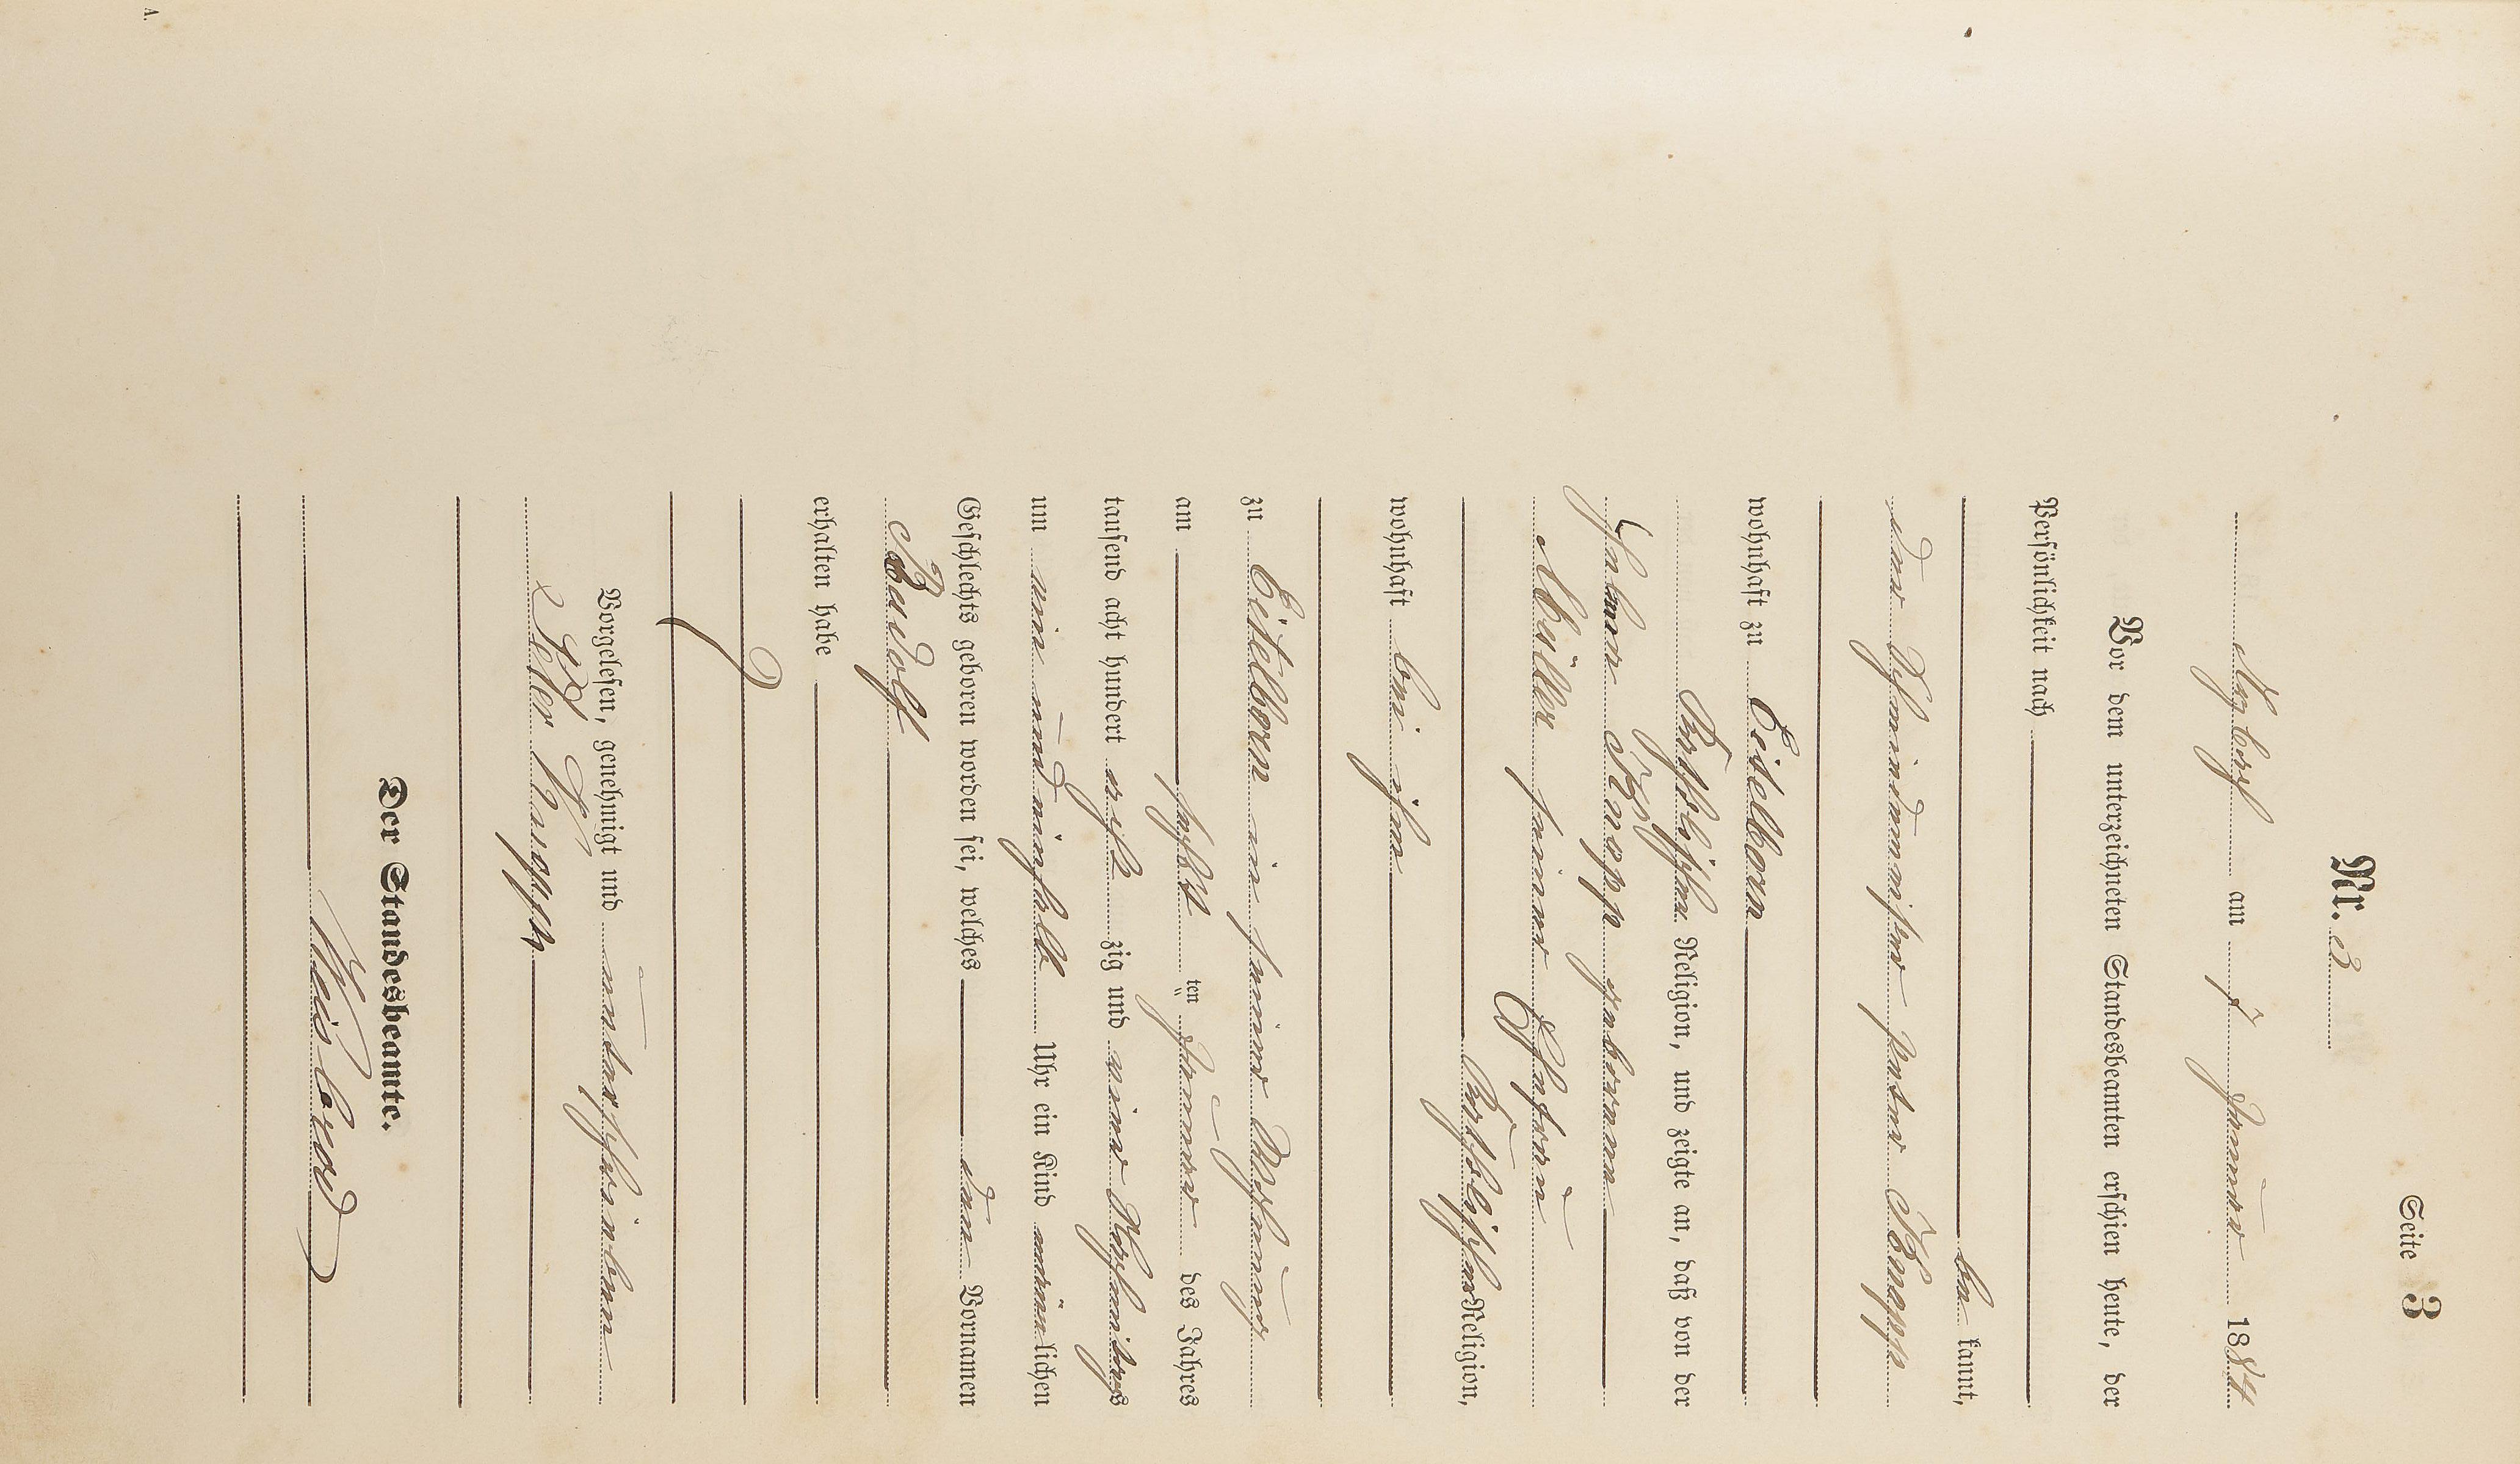 Seite 3
Nr. 3
am 7 Januar 1884
Vor dem unterzeichneten Standesbeamten erschien heute, der
Persönlichkeit nach
be kannt,
der Schmiedemeister Peter Knopp
wohnhaft zu Eitelborn
katholischer Religion, und zeigte an, daß von der
Knopp geborene
Müller seiner Ehefrau
katholischer Religion,
wohnhaft bei ihm
zu Eitelborn in seiner Wohnung
am sechst ten Januar des Jahres
tausend acht hundert acht zig und vier Nachmittags
um ein und einhalb Uhr ein Kind männlichen
Geschlechts geboren worden sei, welches den Vornamen
Rudolf
erhalten habe
Vorgelesen, genehmigt und unterschrieben
Peter Knopp
Der Standesbeamte.
A.